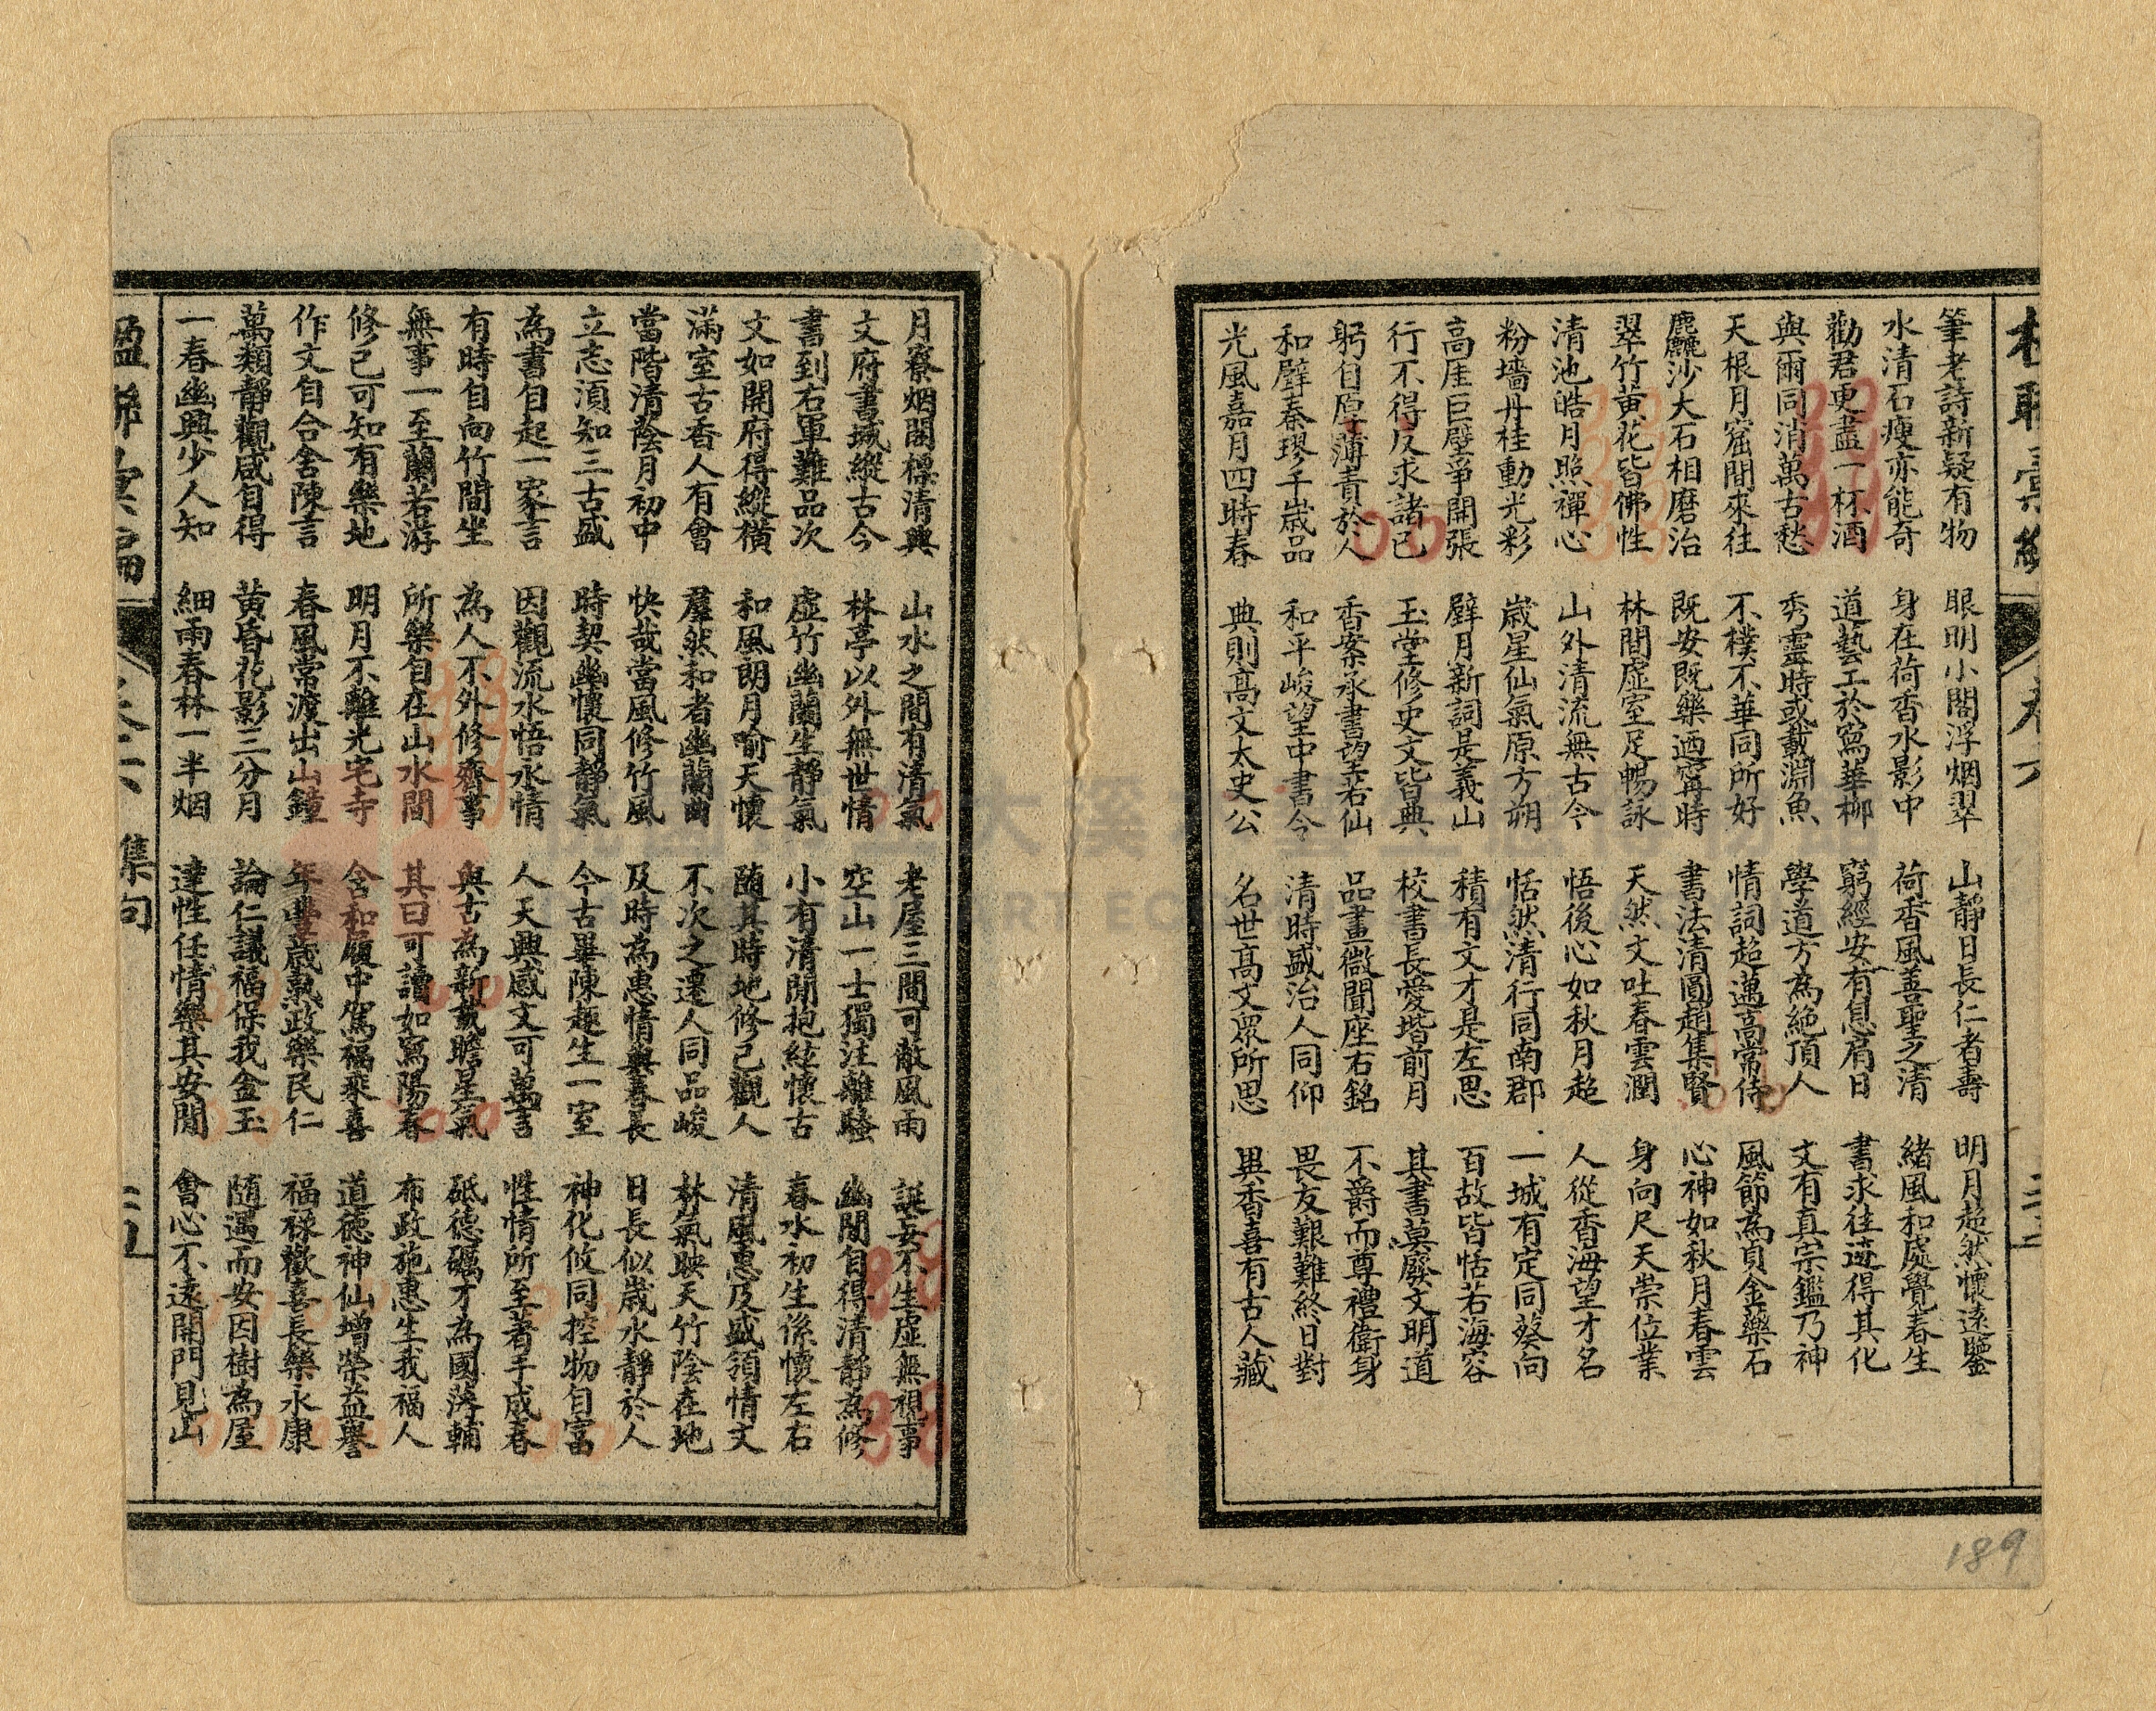 筆老詩新疑有物　眼明小閣浮烟翠　山靜日長仁者壽　明月超然懷遠鑒
水清石瘦亦能奇　身在荷香水影中　荷香風善聖之清　緒風和處覺春生
勸君更盡一杯酒　道藝工於寫華柳　窮經安有息肩日　書求往迹得其化
與爾同消萬古愁　秀靈時或載淵魚　學道方為絕頂人　文有真宗鑑乃神
天根月窟間來往　不樸不華同所好　情詞超邁高常侍　風節為貞金樂石
麤沙大石相磨治　既安既樂迺寗時　書法清圓趙集賢　心神如秋月春雲
翠竹黃花皆佛性　林間虛室足暢詠　天然文吐春雲潤　身向尺天崇位業
清池皓月照禪心　山外清流無古今　悟後心如秋月超　人從香海望才名
粉墻丹桂動光彩　歲星仙氣原方朔　恬然清行同南郡　一城有定同葵向
高厓巨壁爭開張　璧月新詞是義山　積有文才是左思　百故皆恬若海容
行不得反求諸已　玉堂修史文皆典　校書長愛堦前月　其書莫廢文明道
躬自厚薄責於人　香案承書望若仙　品畫微聞座右銘　不爵而尊禮衛身
和璧秦璆千歲品　和平峻望中書令　清時盛治人同仰　畏友艱難終日對
光風嘉月四時春　典則高文太史公　名世高文眾所思　異香喜有古人藏
月寮烟閣標清興　山水之間有清氣　老屋三間可敵風雨　誕妄不生虛無視事
文府書城縱古今　林亭以外無世情　空山一士獨注離騷　幽閒自得清靜為修
書到右軍難品次　虛竹幽蘭生靜氣　小有清閒抱絃懷古　春水初生係懷左右
文如開府得縱橫　和風朗月喻天懷　隨其時地修己觀人　清風惠及盛領情文
滿室古香人有會　羣然和者幽蘭曲　不次之遷人同品峻　林氣映天竹陰在地
當階清蔭月初中　快哉當風修竹風　及時為惠情與春長　日長似歲水靜於人
立志須知三古盛　時契幽懷同靜氣　今古畢陳趣生一室　神化攸同控物自富
為書自起一家言　因觀流水悟永情　人天興感文可萬言　性情所至著手成春
有時自向竹間坐　為人不外修齊事　與古為新載瞻星氣　砥德礪才為國藩輔
無事一至蘭若游　所樂自在山水間　其曰可讀如寫陽春　布政施惠生我福人
修已可知有樂地　明月不離光宅寺　含和履中駕福乘喜　道德神仙增榮益譽
作文自合舍陳言　春風常渡出山鐘　年豐歲熟政樂民仁　福祿歡喜長樂永康
萬類靜觀咸自得　黃昏花影三分月　論仁議福保我金玉　隨遇而安因樹為屋
一春幽興少人知　細雨春林一半烟　達性任情樂其安閒　會心不遠開門見山
楹聯彙編　卷六　集句
189